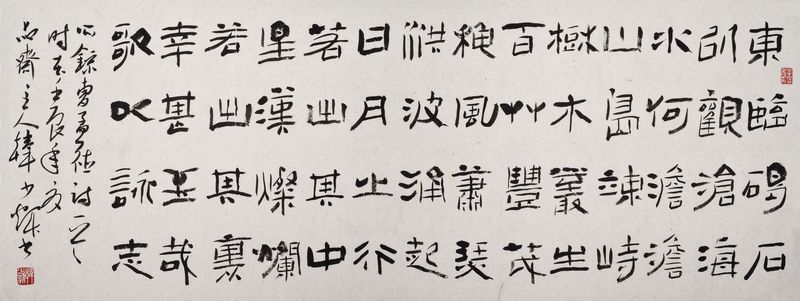 東臨碣石
以觀滄海
水何澹澹
山島竦峙
樹木叢生
百艸豐茂
秋風蕭瑟
洪波涌起
日月之行
若出其中
星漢燦爛
若出其裏
幸甚至哉
歌以詠志
錄曹孟德詩一
时在壬辰年夏
品齋主人韓少